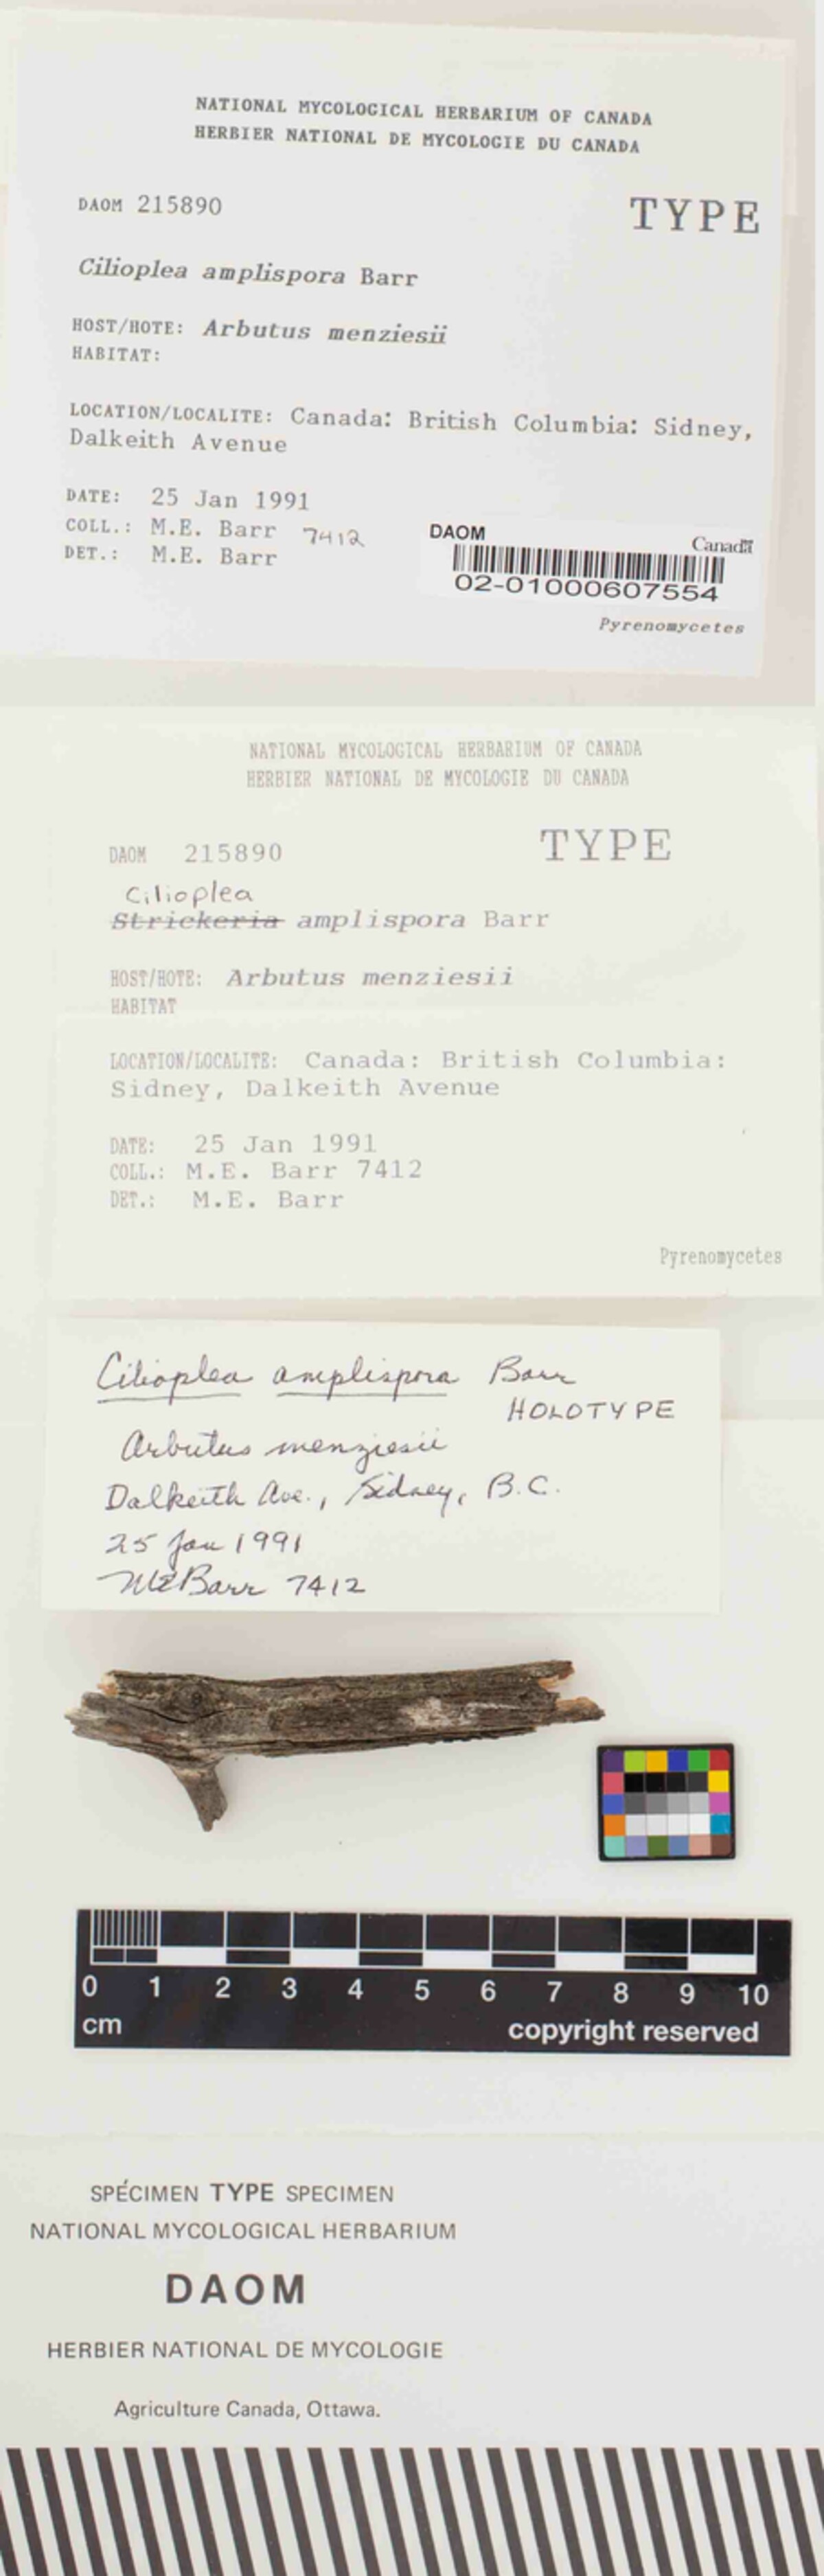 NATIONAL MYCOLOGICAL HERBARIUM OF CANADA
HERBIER NATIONAL DE MYCOLOGIE DU CANADA
DAOM 215890
TYPE
Cilioplea amplispora Barr
HOST/HOTE: Arbutus menziesii
HABITAT:
LOCATION/LOCALITE: Canada: British Columbia: Sidney,
Dalkeith Avenue
DATE: 25 Jan 1991
COLL.: M.E. Barr 7412
DET.: M.E. Barr
DAOM
Canada
02-01000607554
Pyrenomycetes
NATIONAL MYCOLOGICAL HERBARIUM OF CANADA
HERBIER NATIONAL DE MYCOLOGIE DU CANADA
DAOM 215890
TYPE
Cilioplea
Strickeria amplispora Barr
HOST/HOTE: Arbutus menziesii
HABITAT
LOCATION/LOCALITE: Canada: British Columbia:
Sidney, Dalkeith Avenue
DATE: 25 Jan 1991
COLL.: M.E. Barr 7412
DET.: M.E. Barr
Pyrenomycetes
Cilioplea amplispora Barr
HOLOTYPE
Arbutus menziesii
Dalkeith Ave., Sidney, B.C.
25 Jan 1991
MEBarr 7412
0 1 2 3 4 5 6 7 8 9 10
cm
copyright reserved
SPÉCIMEN TYPE SPECIMEN
NATIONAL MYCOLOGICAL HERBARIUM
DAOM
HERBIER NATIONAL DE MYCOLOGIE
Agriculture Canada, Ottawa.